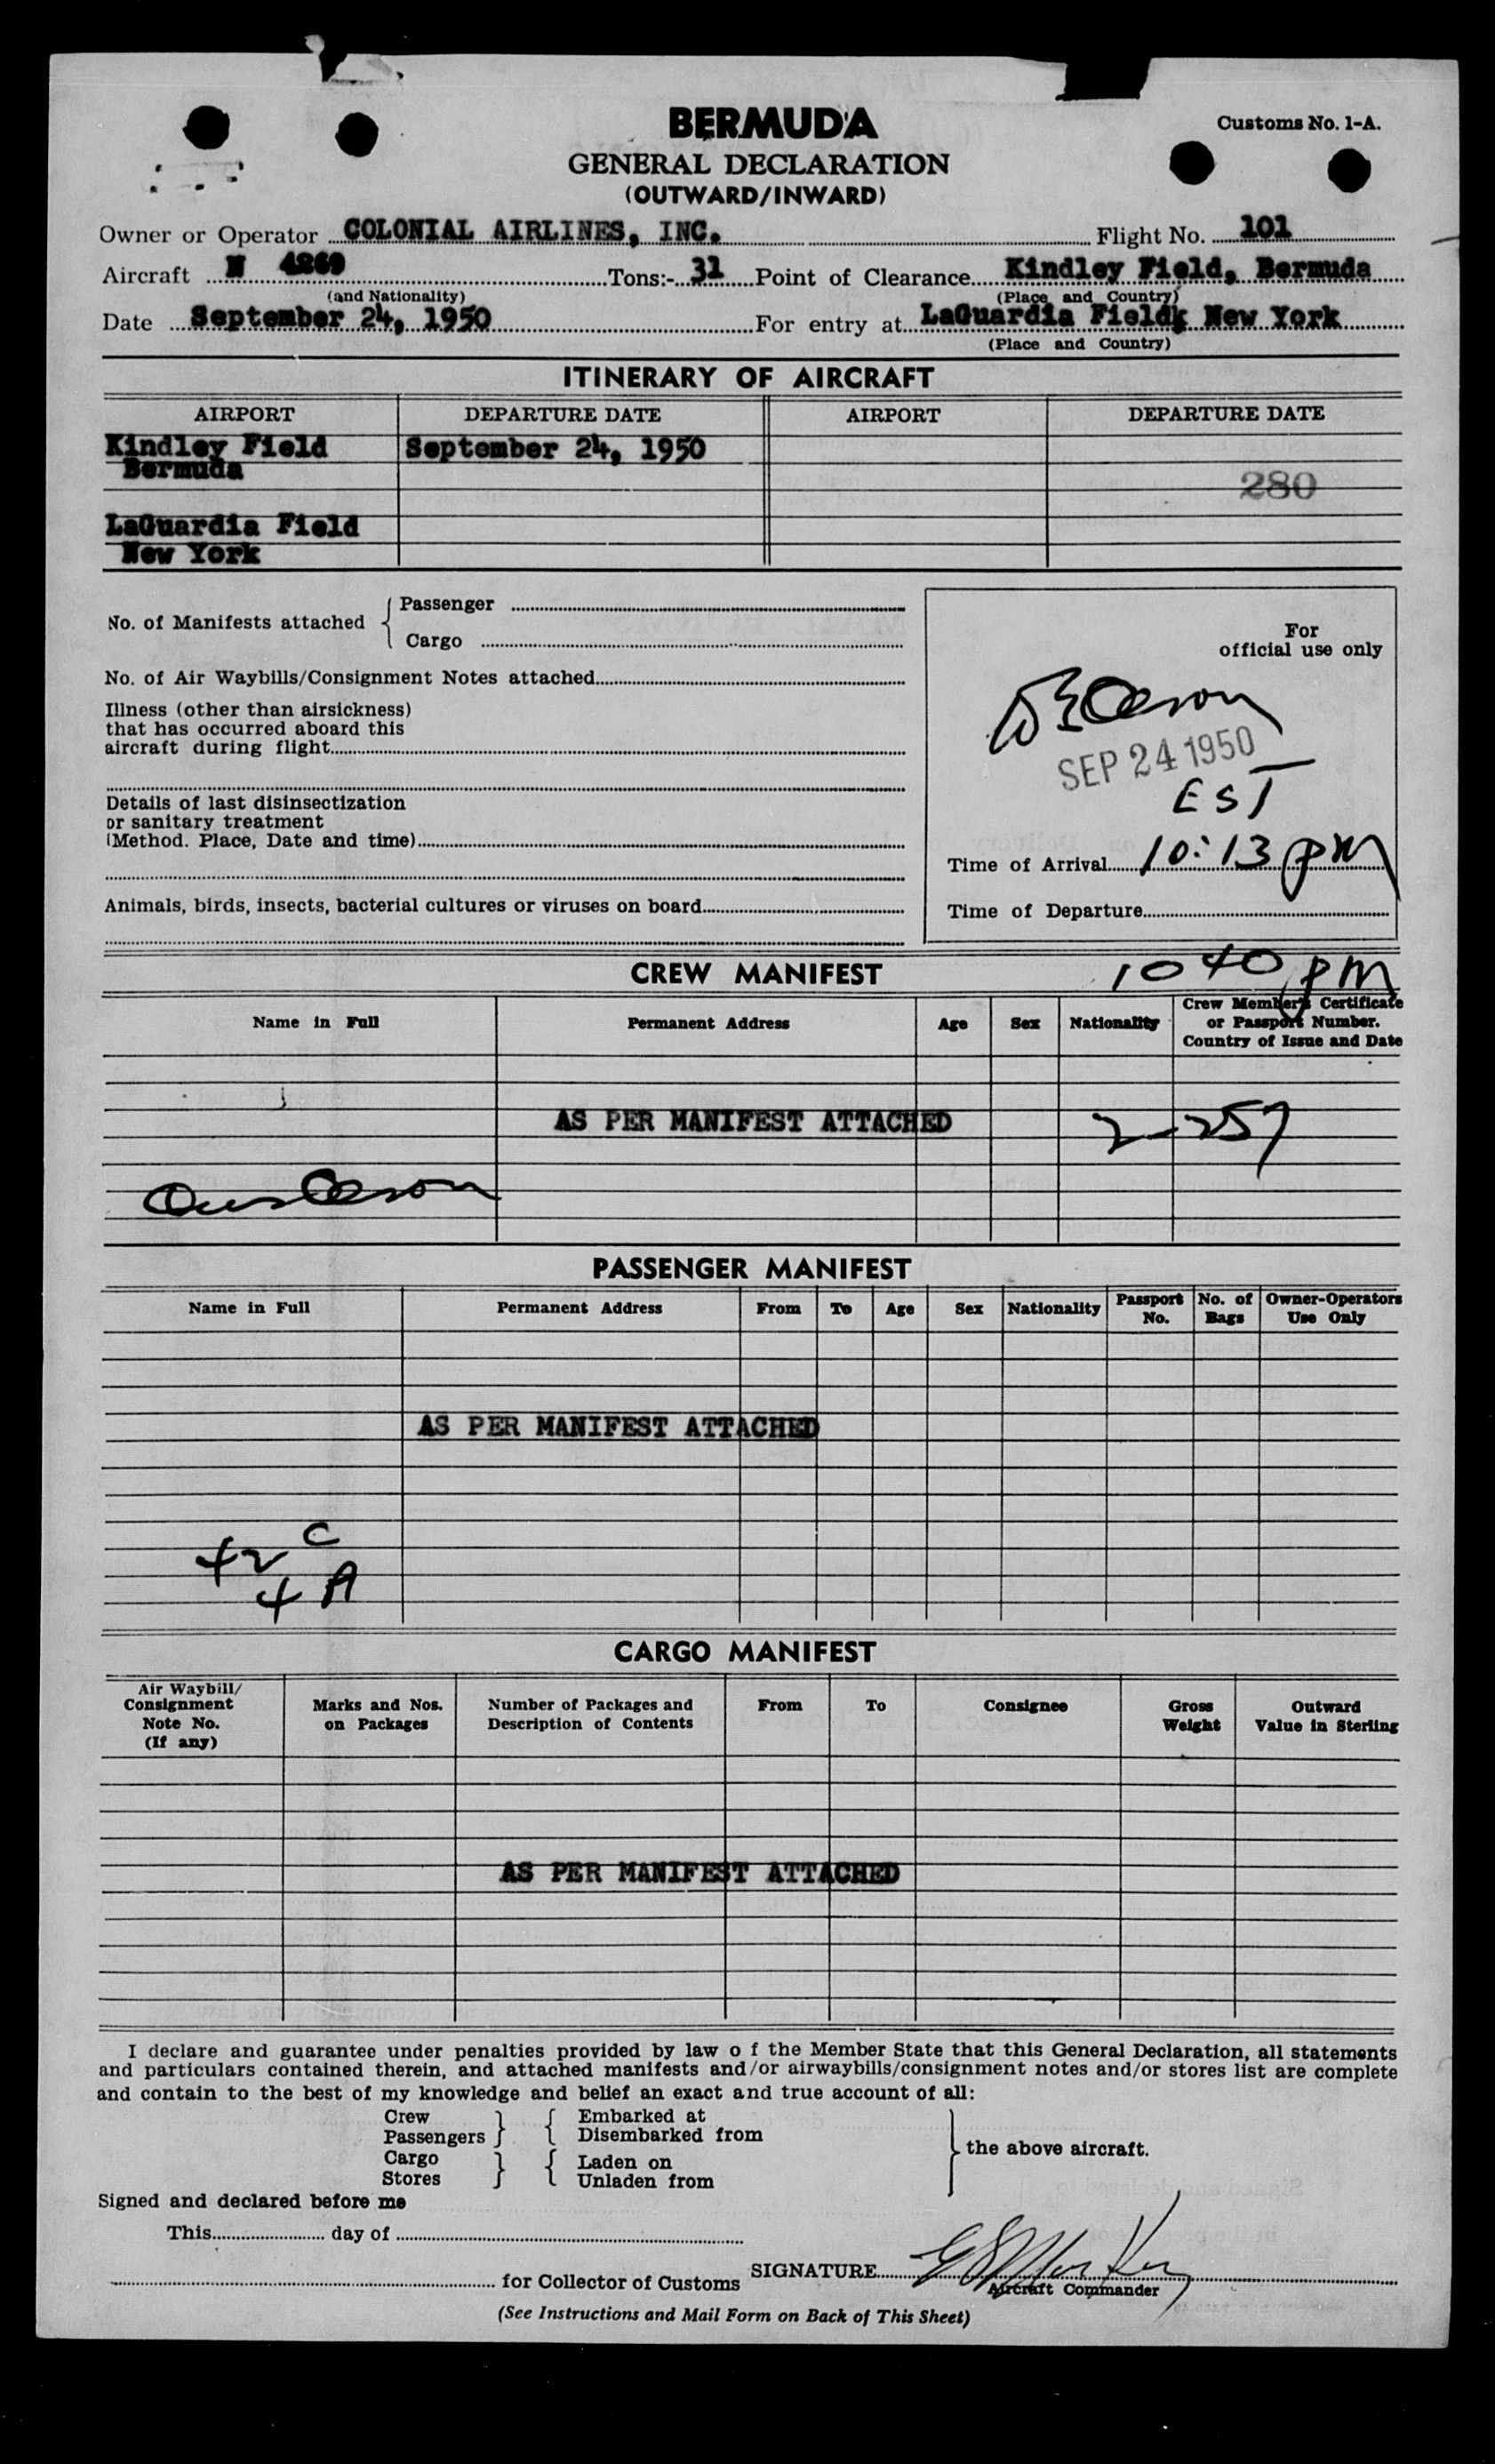 BERMUDA
Customs No. 1-A.
GENERAL DECLARATION
(OUTWARD/INWARD)
Owner or Operator COLONIAL AIRLINES, INC. Flight No. 101
Aircraft N 4269 Tons:- 31 Point of Clearance Kindley Field, Bermuda
(and Nationality) (Place and Country)
Date September 24, 1950 For entry at LaGuardia Field, New York
(Place and Country)
ITINERARY OF AIRCRAFT
AIRPORT DEPARTURE DATE AIRPORT DEPARTURE DATE
Kindley Field September 24, 1950
Bermuda
280
LaGuardia Field
New York
No. of Manifests attached
Passenger
Cargo
No. of Air Waybills/Consignment Notes attached
Illness (other than airsickness)
that has occurred aboard this
aircraft during flight
Details of last disinsectization
or sanitary treatment
(Method. Place, Date and time)
Animals, birds, insects, bacterial cultures or viruses on board
For
official use only
SEP 24 1950
EST
Time of Arrival 10:13 pm
Time of Departure
CREW MANIFEST 1040 pm
Name in Full Permanent Address Age Sex Nationality Crew Member's Certificate
or Passport Number.
Country of Issue and Date
AS PER MANIFEST ATTACHED 2-257
PASSENGER MANIFEST
Name in Full Permanent Address From To Age Sex Nationality Passport No. No. of Bags Owner-Operators Use Only
AS PER MANIFEST ATTACHED
42 C
4 A
CARGO MANIFEST
Air Waybill/
Consignment
Note No.
(If any)
Marks and Nos.
on Packages
Number of Packages and
Description of Contents
From To Consignee
Gross
Weight
Outward
Value in Sterling
AS PER MANIFEST ATTACHED
I declare and guarantee under penalties provided by law o f the Member State that this General Declaration, all statements
and particulars contained therein, and attached manifests and/or airwaybills/consignment notes and/or stores list are complete
and contain to the best of my knowledge and belief an exact and true account of all:
Crew Embarked at
Passengers Disembarked from
the above aircraft.
Cargo Laden on
Stores Unladen from
Signed and declared before me
This day of
for Collector of Customs SIGNATURE
Aircraft Commander
(See Instructions and Mail Form on Back of This Sheet)